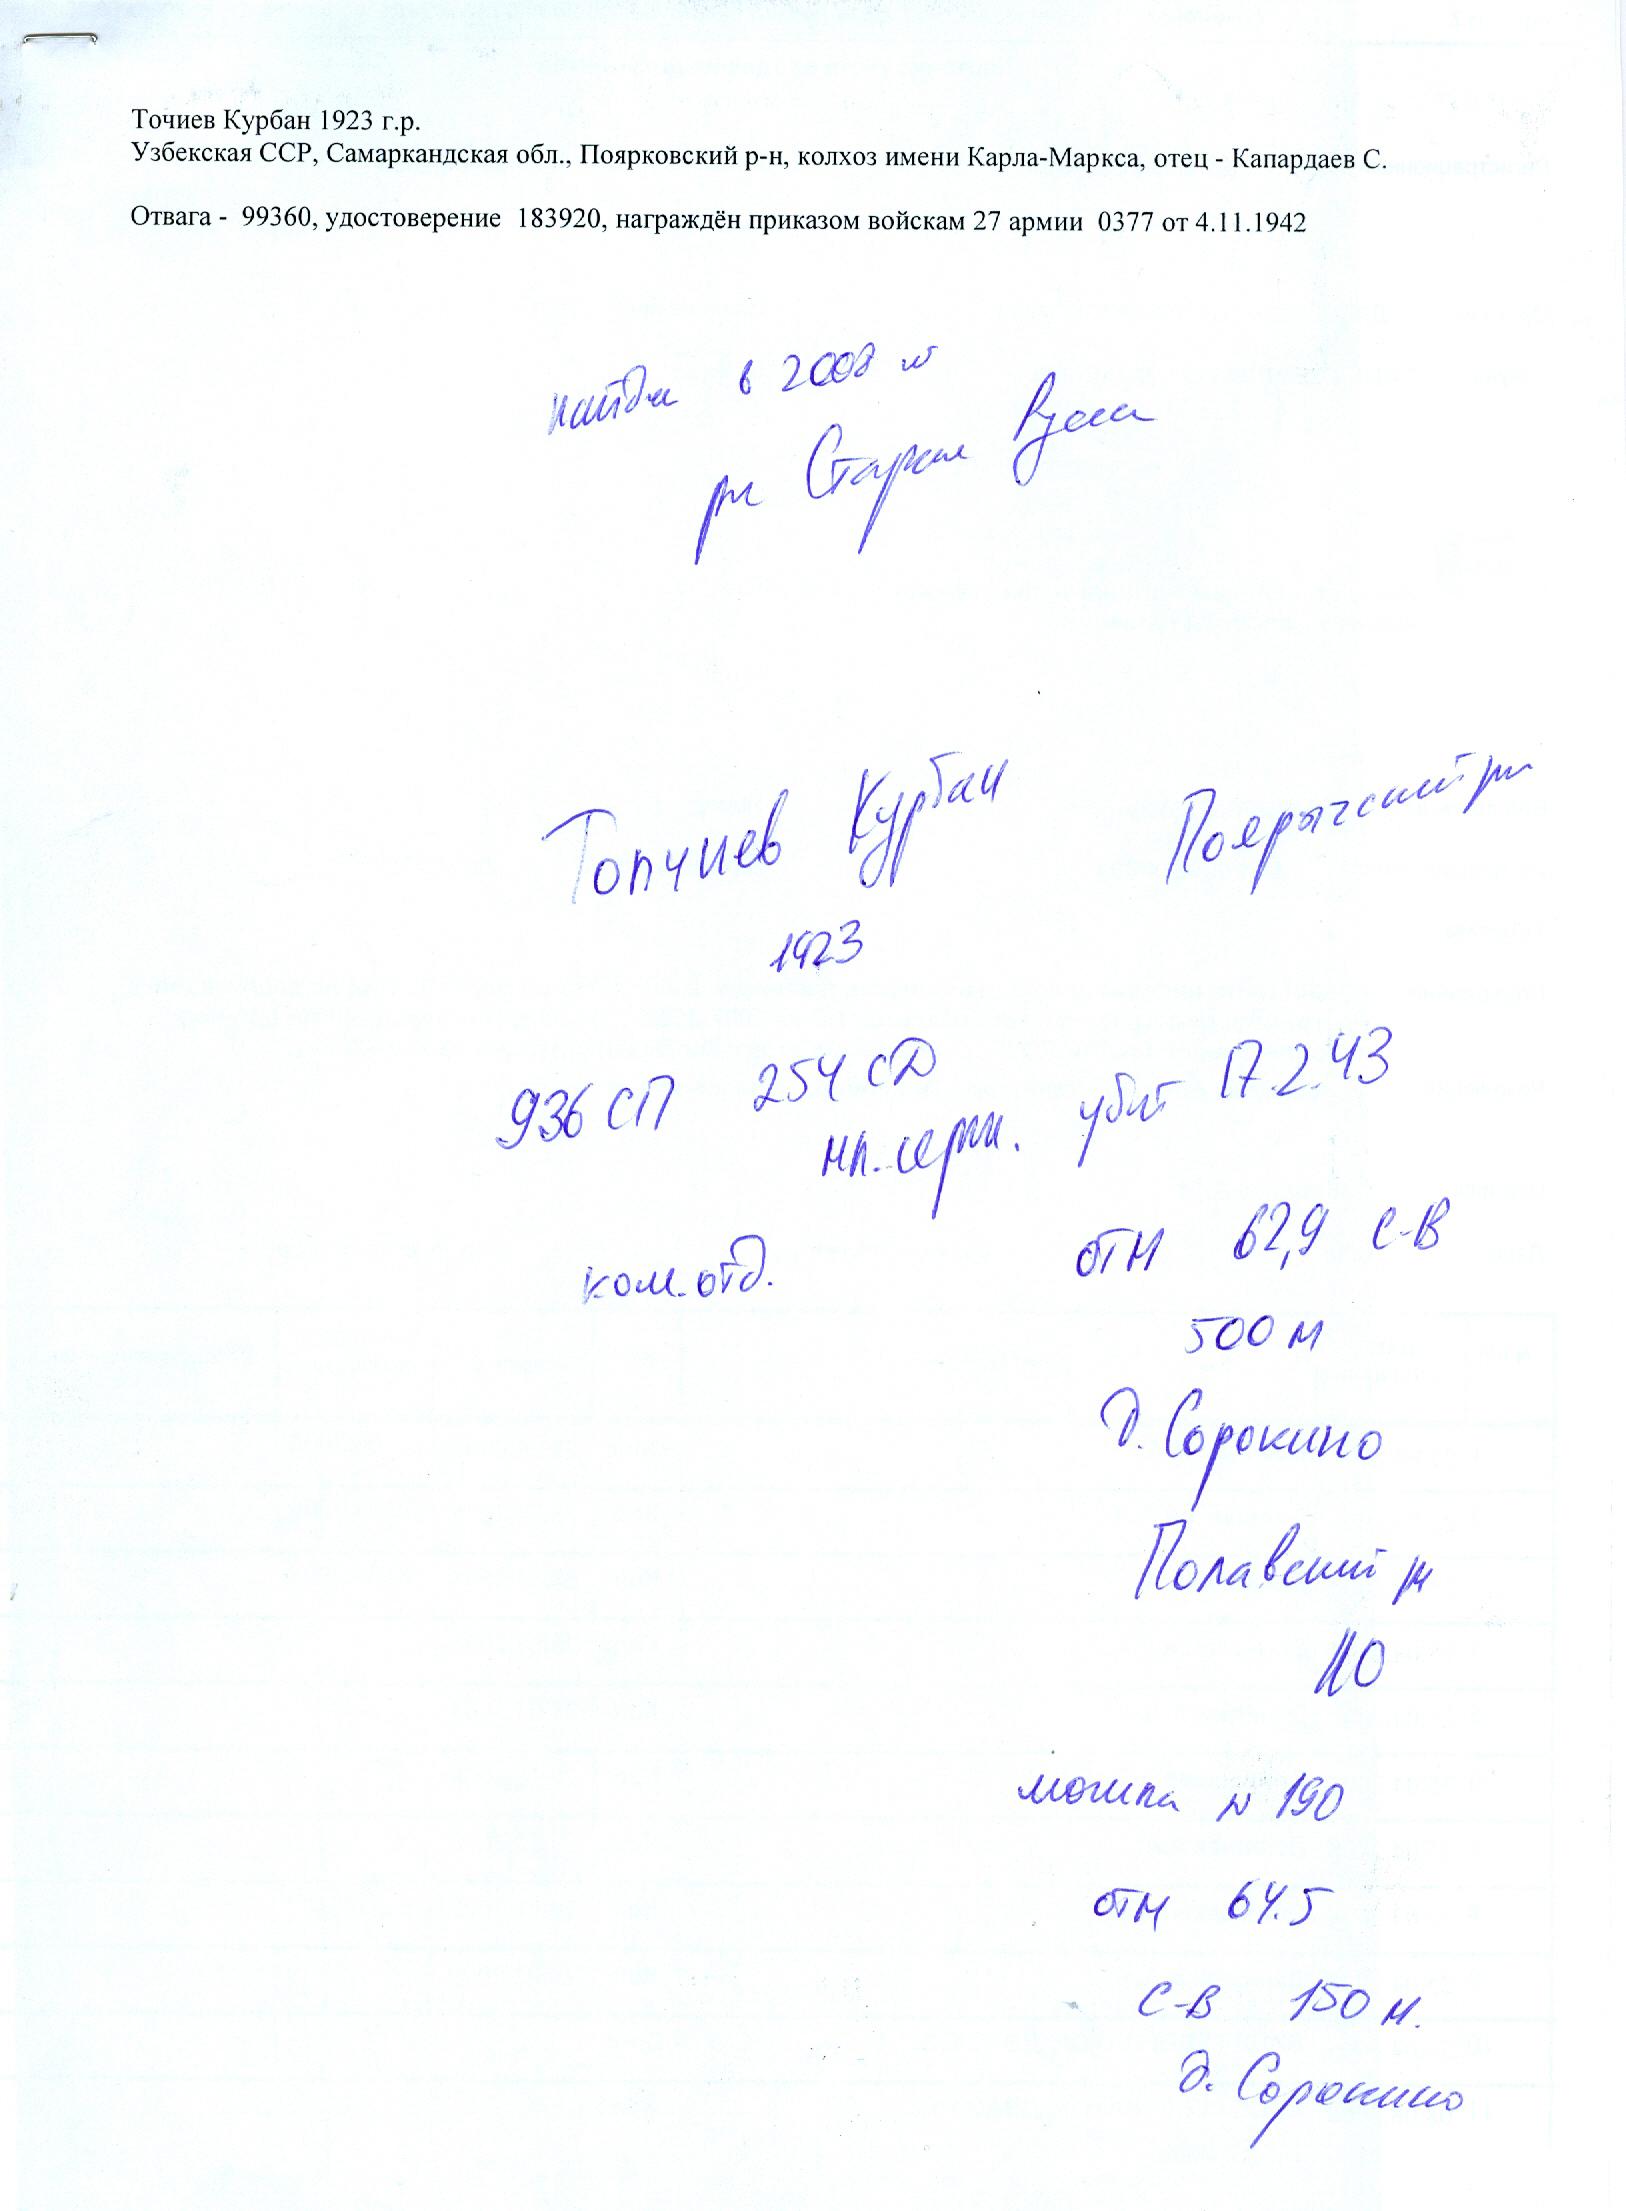 Точиев Курбан 1923 г.р.
Узбекская ССР, Самаркандская обл., Поярковский р-н, колхоз имени Карла-Маркса, отец - Капардаев С.
Отвага - 99360, удостоверение 183920, награждён приказом войскам 27 армии 0377 от 4.11.1942
в 2008
Старая Русса
Топчиев Курбан
1923
936 СП 254 СД
мл. серж. убит 17.2.43
ком. отд.
отм 62,9 С-В
500 м
д. Сорокино
Полавский рн
ЛО
могила N 190
отм 64.5
С-В 150 м.
д. Сорокино